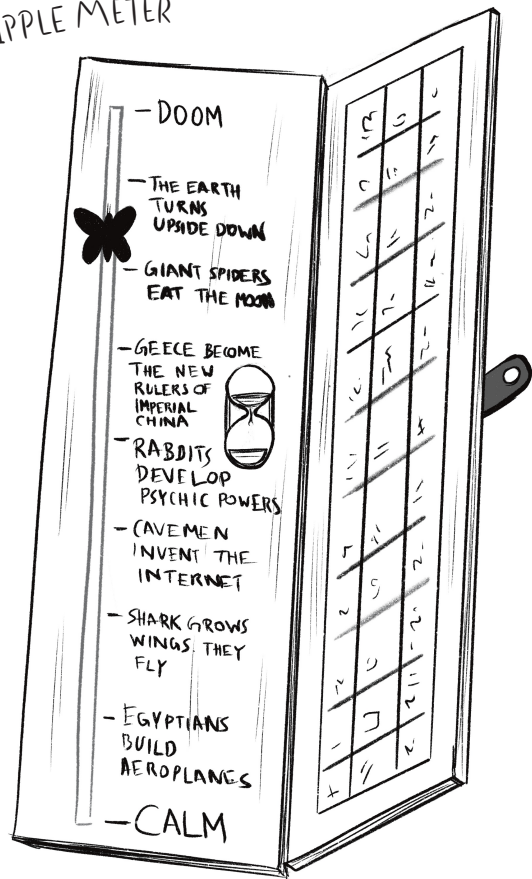 IPPLE METER
– DOOM
– THE EARTH
TURNS
UPSIDE DOWN
– GIANT SPIDERS
EAT THE MOON
– GEECE BECOME
THE NEW
RULERS OF
IMPERIAL
CHINA
– RABDITS
DEVELOP
PSYCHIC POWERS
– CAVEMEN
INVENT THE
INTERNET
– SHARK GROWS
WINGS. THEY
FLY
– EGYPTIANS
BUILD
AEROPLANES
– CALM